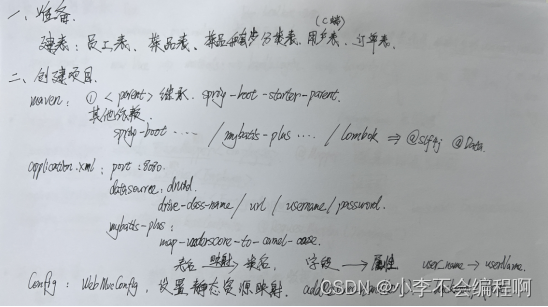 一、准备.
(C端)
建表: 员工表、菜品表、菜品和套餐分类表、用户表、订单表.
二、创建项目.
maven: ① <parent> 继承. spring-boot-starter-parent.
其他依赖
spring-boot ..... / mybatis-plus .... / lombok ⇒ @slf4j @Data
application.xml: port: 8080.
datasource: druid.
drive-class-name / url / username / password.
mybatis-plus:
map-underscore-to-camel-case.
表名 映射→ 类名, 字段 → 属性 user_name → userName.
Config: WebMvcConfig, 设置静态资源映射.
CSDN @小李不会编程啊